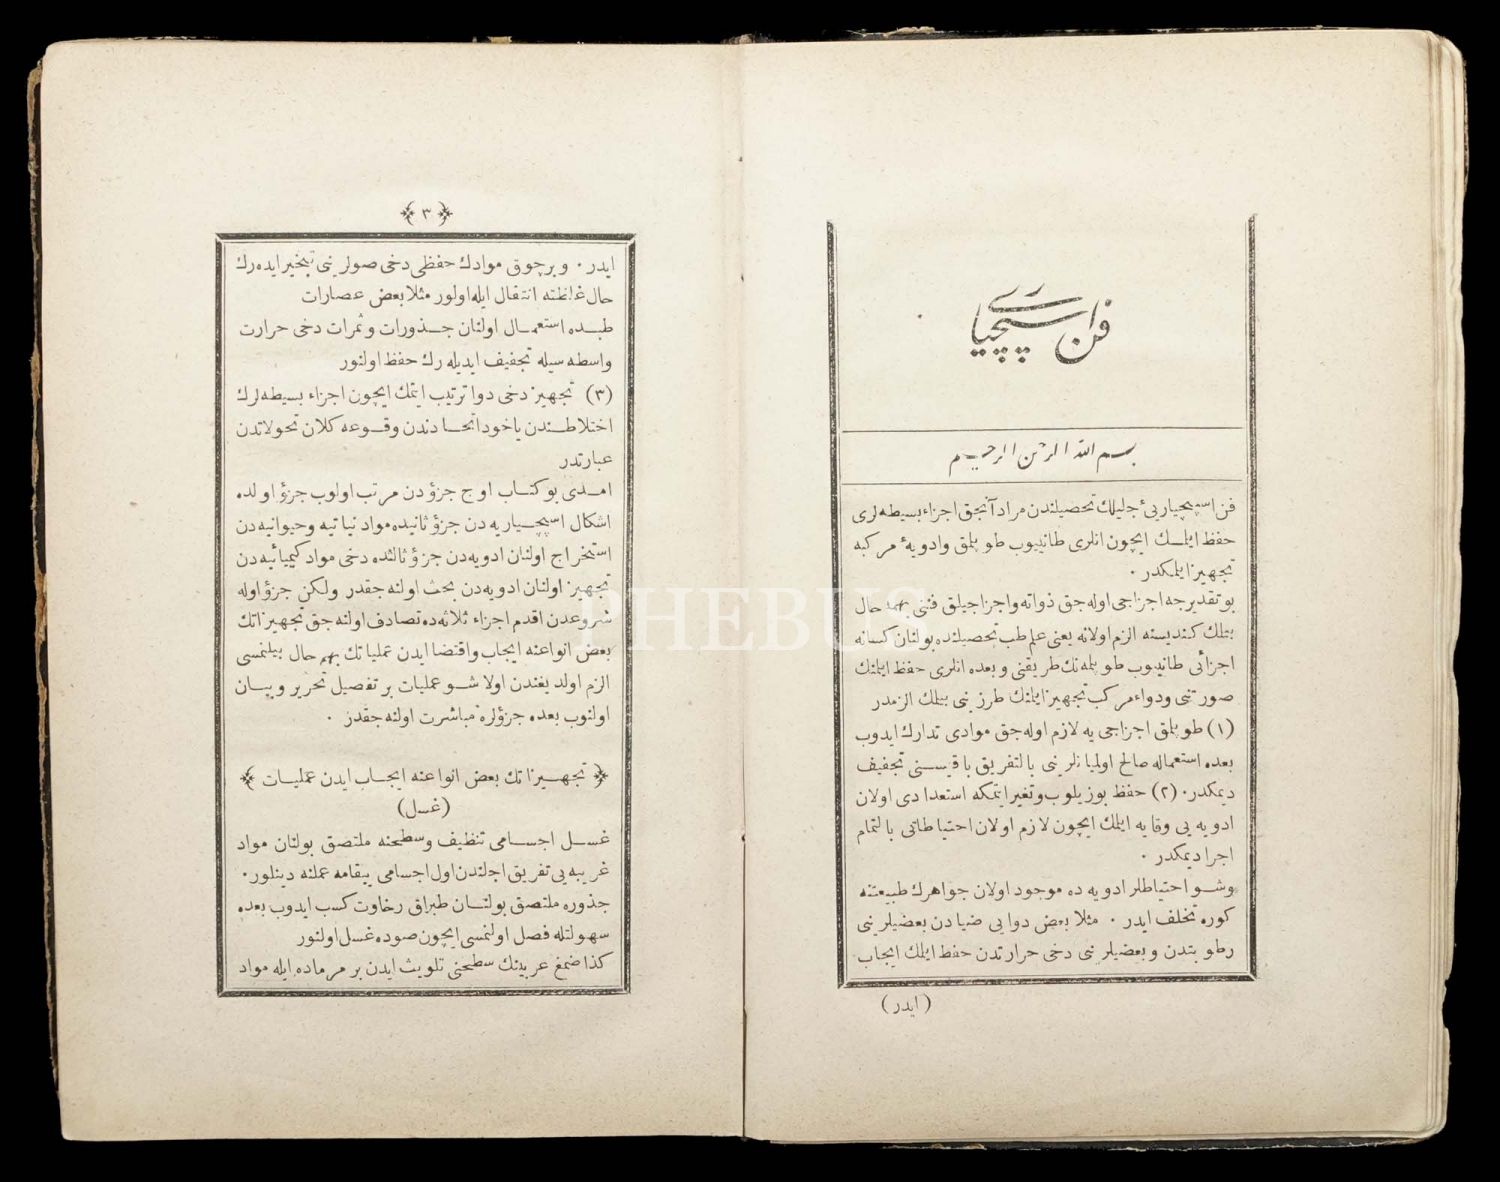 فن اسپچیاری
بسم الله الرحمن الرحیم
فن اسپچیاریٔ جلیلك تحصیلندن مراد آنجق اجزاء بسیطه لری
حفظ ایلمك ایچون انلری طانییوب طوپلمق وادویهٔ مرکبه
تجهیز ایلمکدر ۰
بو تقدیرجه اجزاجی اوله جق ذواته واجزاجیلق فننی بهمه حال
بتلك کندیسنه الزم اولانه یعنی علم طب تحصیلنده بولنان کسانه
اجزائی طانییوب طوپلمه نك طریقنی وبعده انلری حفظ ایلمنك
صورتنی ودواء مرکب تجهیز ایلمنك طرزینی بیلمك الزمدر
(۱) طوپلمق اجزاجی یه لازم اوله جق موادی تدارك ایدوب
بعده استعماله صالح اولمیانلرینی بالتفریق باقیسنی تجفیف
دیمکدر۰ (۲) حفظ بوزیلوب وتغیر ایتمکه استعدادی اولان
ادویه یی وقایه ایلمك ایچون لازم اولان احتیاطاتی بالتمام
اجرا دیمکدر ۰
وشو احتیاطلر ادویه ده موجود اولان جواهرك طبیعتنه
کوره تخلف ایدر ۰ مثلا بعض دوایی ضیادن بعضیلرینی
رطوبتدن وبعضیلرینی دخی حرارتدن حفظ ایلمك ایجاب
(ایدر)
۳
ایدر ۰ وبرچوق موادك حفظی دخی صولرینی تبخیر ایده رك
حال غلظته انتقال ایله اولور مثلا بعض عصارات
طبده استعمال اولنان جذورات وثمرات دخی حرارت
واسطه سیله تجفیف ایدیله رك حفظ اولنور
(۳) تجهیز دخی دوا ترتیب ایتمك ایچون اجزاء بسیطه لرك
اختلاطندن یاخود اتحادندن وقوعه کلان تحولاتدن
عبارتدر
امدی بو کتاب اوج جزؤدن مرتب اولوب جزؤ اولده
اشکال اسپچیاریه دن جزؤ ثانیده مواد نباتیه وحیوانیه دن
استخراج اولنان ادویه دن جزؤ ثالثده دخی مواد کیمیائیه دن
تجهیز اولنان ادویه دن بحث اولنه جقدر ولکن جزؤ اوله
شروعدن اقدم اجزاء ثلاثه ده تصادف اولنه جق تجهیزاتك
بعض انواعنه ایجاب واقتضا ایدن عملیاتك بهمه حال بیلنمسی
الزم اولدیغندن اولا شو عملیات بر تفصیل تحریر وبیان
اولنوب بعده جزؤلره مباشرت اولنه جقدر ۰
﴿ تجهیزاتك بعض انواعنه ایجاب ایدن عملیات ﴾
(غسل)
غسل اجسامی تنظیف وسطحنه ملتصق بولنان مواد
غریبه یی تفریق اجلندن اول اجسامی ییقامه عملنه دینلور۰
جذوره ملتصق بولنان طبراق رخاوت کسب ایدوب بعده
سهولتله فصل اولنمسی ایچون صوده غسل اولنور
کذا ضمغ عربینك سطحنی تلویث ایدن بر مر ماده ایله مواد
PHEBUS